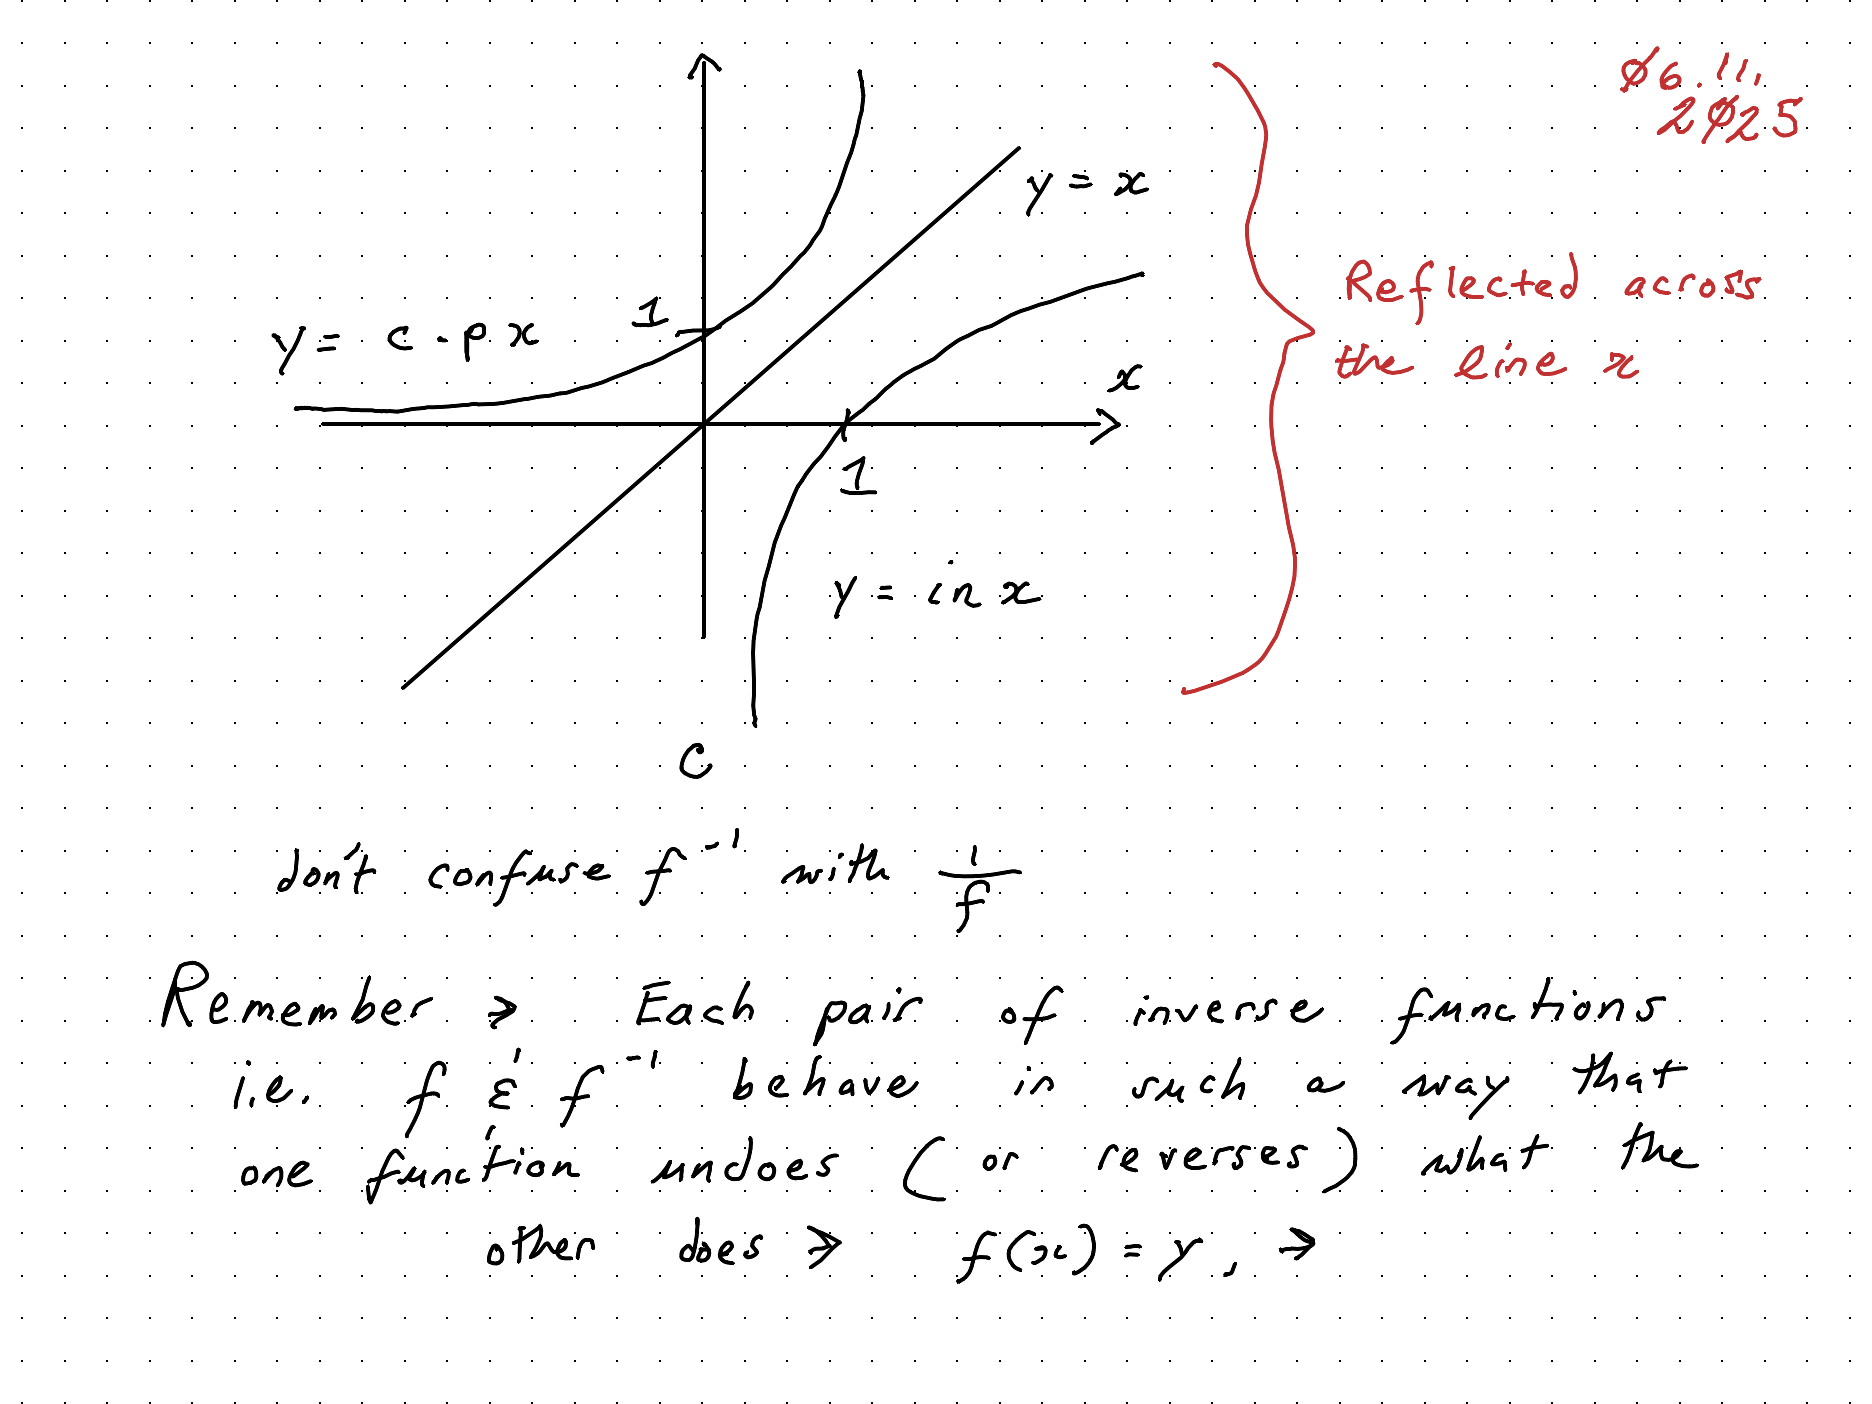 Ø6.11.
2Ø25
y = x
Reflected across
1
y = c · p x
the line x
x
1
y = in x
C
don't confuse f⁻¹ with 1/f
Remember → Each pair of inverse functions
i.e. f & f⁻¹ behave in such a way that
one function undoes (or reverses) what the
other does → f(x) = y, →